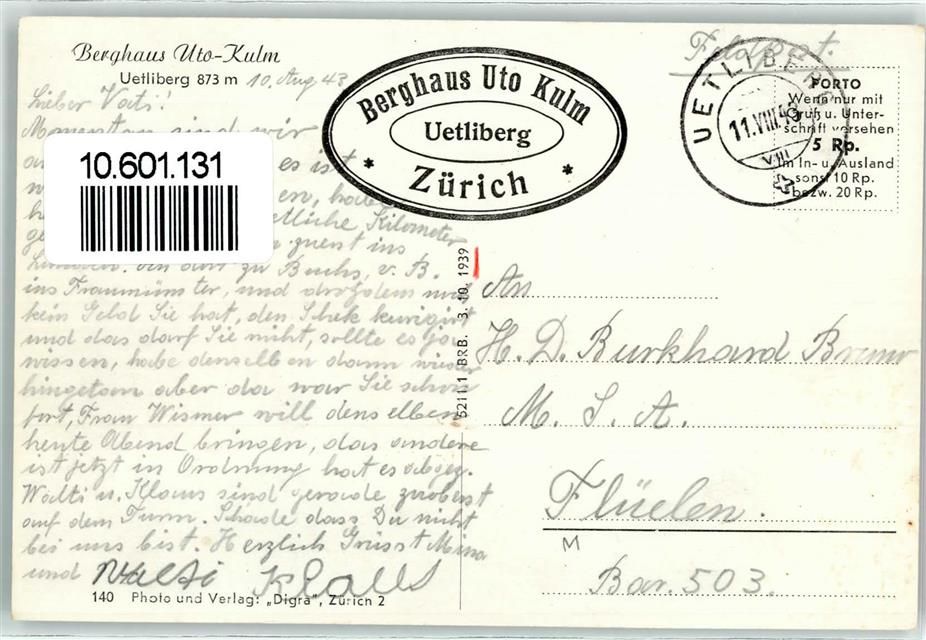 Berghaus Uto-Kulm
Uetliberg 873 m
10. Aug 43
Lieber Vati!
Momentan sind wir
es ist
etliche Kilometer
zuerst ins
zu Buchs, v. B.
ins Fraumünster, und drozdem
kein Geld Sie hat, den Schek
und das darf Sie nicht, sollte es ja
wissen, habe denselben dann wieder
hingetan aber da war Sie schon
fort, Frau Wismer will denselben
heute Abend bringen, das andere
ist jetzt in Ordnung hat es
Walti u. Klaus sind gerade zuoberst
auf dem Turm. Schade dass Du nicht
bei uns bist. Herzlich Grüsst Mina
und Walti Klaus
140 Photo und Verlag: „Digra", Zürich 2
10.601.131
Berghaus Uto Kulm
Uetliberg
* Zürich *
52111 BRB. 3. 10. 1939
Feldpost.
UETLIBERG
11.VIII.43
VIII
PORTO
Wenn nur mit
Gruß u. Unter-
schrift versehen
5 Rp.
im In- u. Ausland
sonst 10 Rp.
bezw. 20 Rp.
An
H. D. Burkhard Bruno
M. S. A.
Flüelen.
M
Bar. 503.